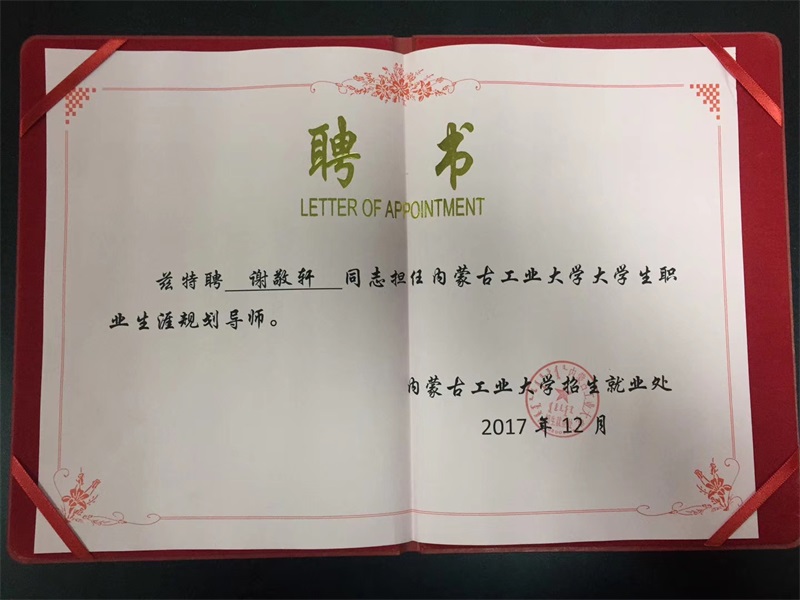 聘 书
LETTER OF APPOINTMENT
兹特聘 谢敬轩 同志担任内蒙古工业大学大学生职
业生涯规划导师。
内蒙古工业大学招生就业处
2017 年 12 月